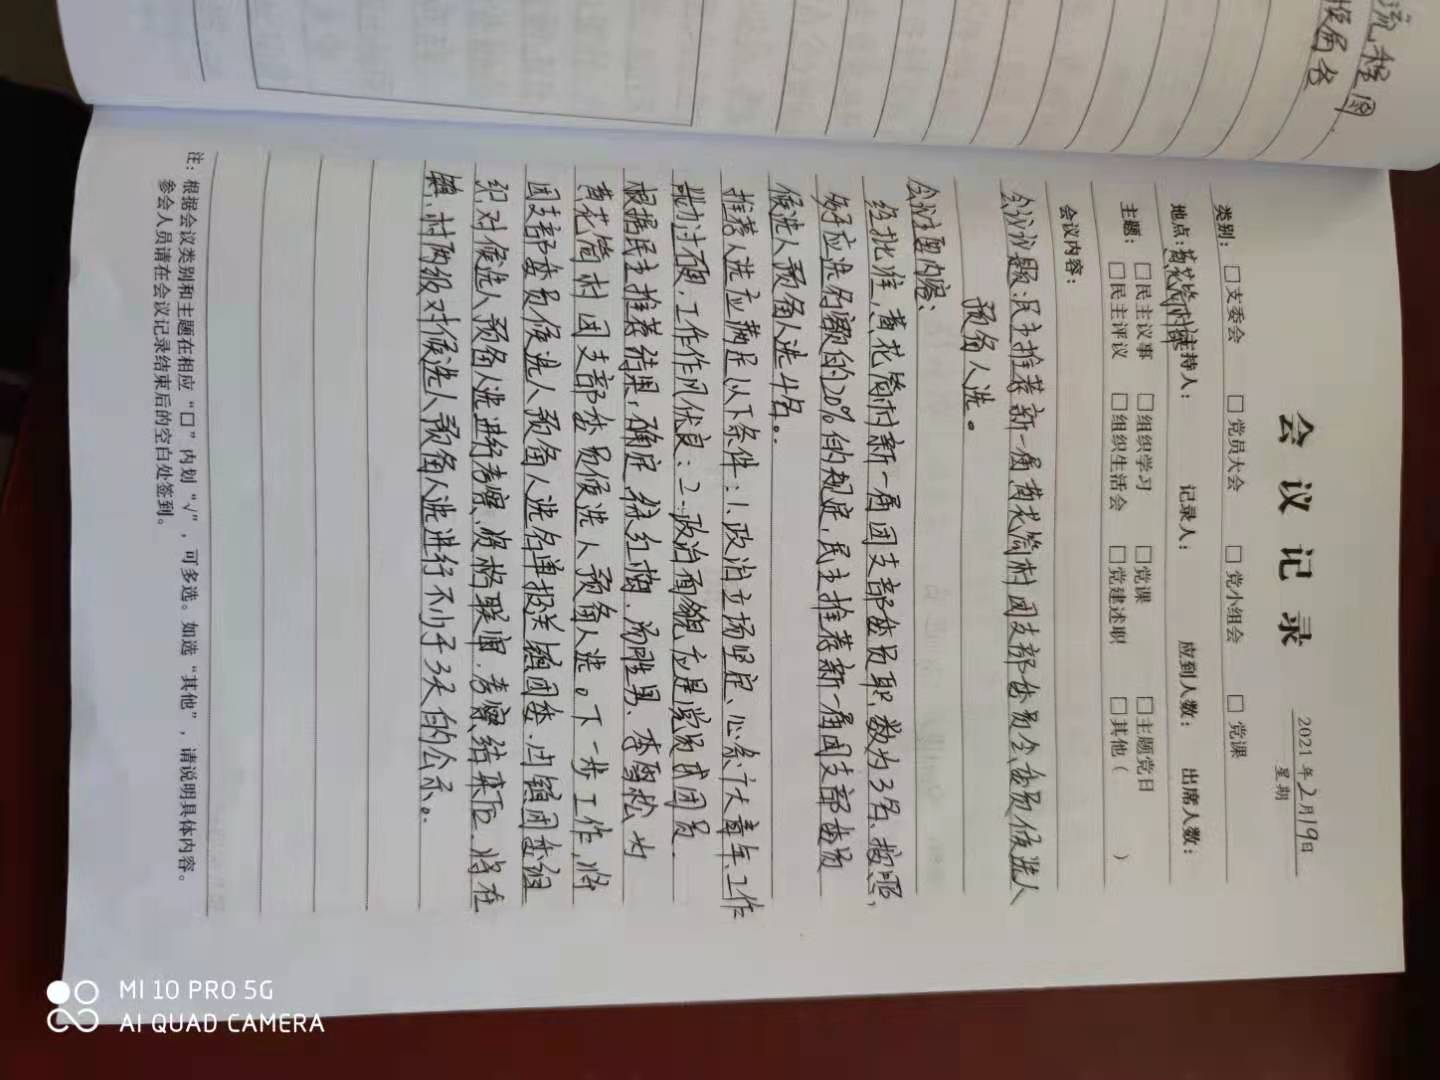 流程图
会议记录
2021年2月19日
星期
类别：□支委会 □党员大会 □党小组会 □党课
地点：黄花筒村 主持人： 记录人： 应到人数： 出席人数：
主题：□民主议事 □组织学习 □党课 □主题党日
□民主评议 □组织生活会 □党建述职 □其他（ ）
会议内容：
会议议题：民主推荐新一届黄花筒村团支部委员会委员候选人
预备人选。
会议主要内容：
经批准，黄花筒村新一届团支部委员职数为3名，按照，
多于应选名额的20%的规定，民主推荐新一届团支部委员
候选人预备人选4名。
推荐人选应满足以下条件：1.政治立场坚定、心系广大青年、工作
能力过硬，工作作风优良：2.政治面貌应是党员或团员.
根据民主推荐结果，确定 红梅、汤胜男、李雪松 为
黄花筒村团支部委员候选人预备人选。下一步工作，将
团支部委员候选人预备人选名单报送镇团委，由镇团委组
织对候选人预备人选进行考察、资格联审，考察结束后，将在
镇、村两级对候选人预备人选进行不少于3天的公示。
注：根据会议类别和主题在相应“口”内划“√”，可多选。如选“其他”，请说明具体内容。
参会人员请在会议记录结束后的空白处签到。
MI 10 PRO 5G
AI QUAD CAMERA